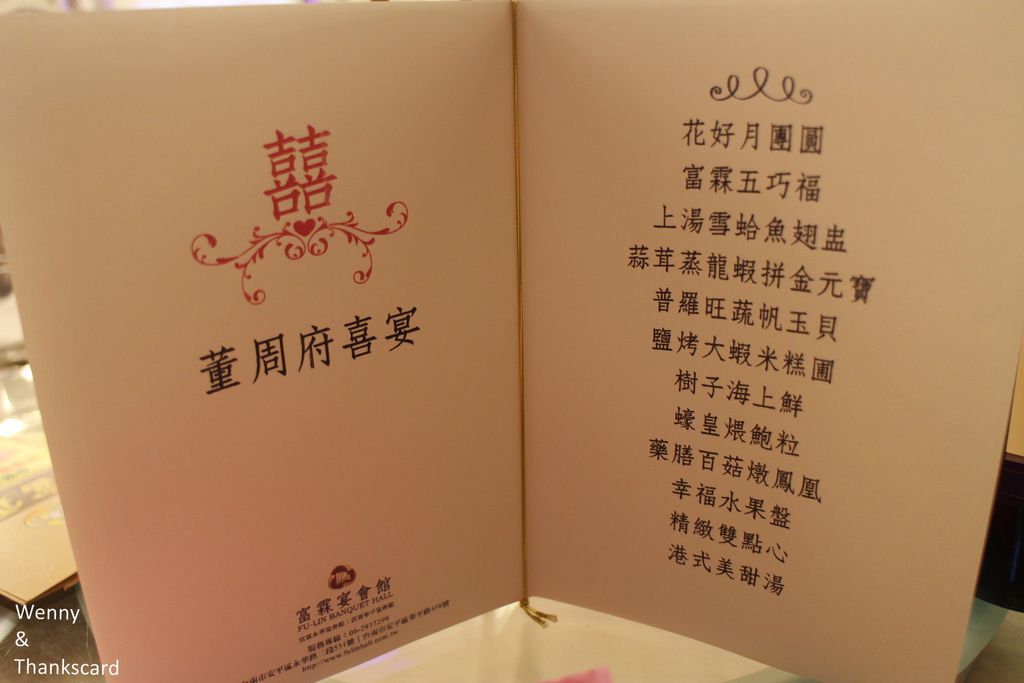 囍
董周府喜宴
富霖宴會館
FU-LIN BANQUET HALL
服務專線：06-2937299
http://www.fulinhall.com.tw
花好月團圓
富霖五巧福
上湯雪蛤魚翅盅
蒜茸蒸龍蝦拼金元寶
普羅旺蔬帆玉貝
鹽烤大蝦米糕圃
樹子海上鮮
蠔皇煨鮑粒
藥膳百菇燉鳳凰
幸福水果盤
精緻雙點心
港式美甜湯
Wenny
&
Thankscard